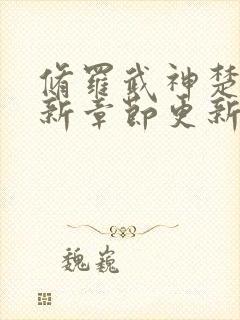 脩羅武神楚
新章節更新
魏巍